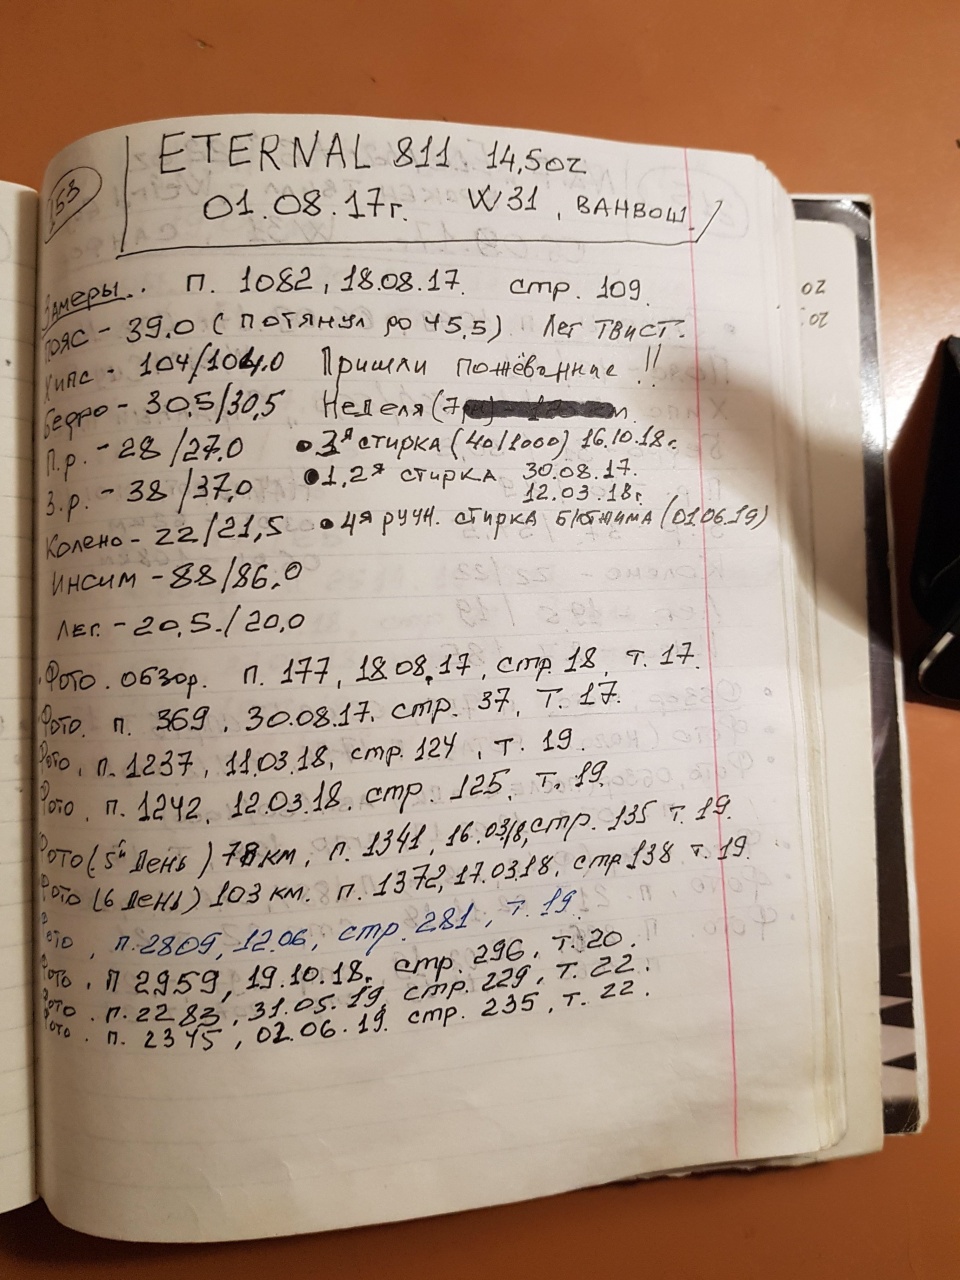 153
ETERNAL 811. 14,5oz
01.08.17г. W31, ВАНВОШ
Замеры. п. 1082, 18.08.17. стр. 109.
Пояс - 39.0 (потянул до 45,5) Лег твист.
Хипс - 104/104.0 Пришли пожёванние!!
Бедро - 30,5/30,5 Неделя (7
П.р. - 28/27.0 • 3я стирка (40/1000) 16.10.18г.
З.р. - 38/37,0 • 1,2я стирка 30.08.17.
12.03.18г
Колено - 22/21,5 • 4я ручн. стирка б/отжима (01.06.19)
Инсим - 88/86,0
Лег. - 20,5./20,0
Фото. обзор. п. 177, 18.08.17, стр. 18, т. 17.
Фото. п. 369, 30.08.17. стр. 37, т. 17.
Фото, п. 1237, 11.03.18, стр. 124, т. 19.
Фото, п. 1242, 12.03.18. стр. 125, т. 19.
Фото (5й День) 78 км, п. 1341, 16.03/8, стр. 135 т. 19.
Фото (6 День) 103 км. п. 1372, 17.03.18, стр 138 т. 19.
Фото, п. 2809, 12.06, стр. 281, т. 19.
Фото. п 2959, 19.10.18г. стр. 296, т. 20.
Фото. п. 2283, 31.05.19, стр. 229, т. 22.
Фото. п. 2345, 02.06.19. стр. 235, т. 22.